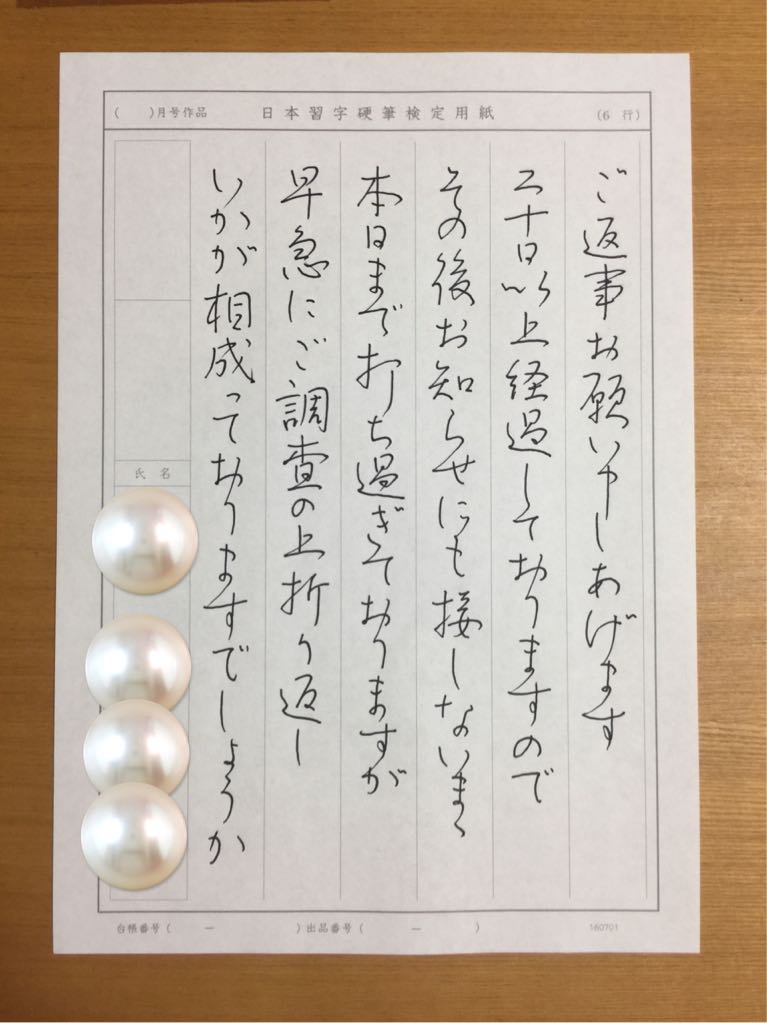 (　)月号作品　日本習字硬筆検定用紙　(6 行)
ご返事お願い申しあげます
二十日以上経過しておりますので
その後お知らせにも接しないまゝ
本日まで打ち過ぎておりますが
早急にご調査の上折り返し
いかが相成っておりますでしょうか
氏名
台帳番号(　－　)出品番号(　－　)　160701